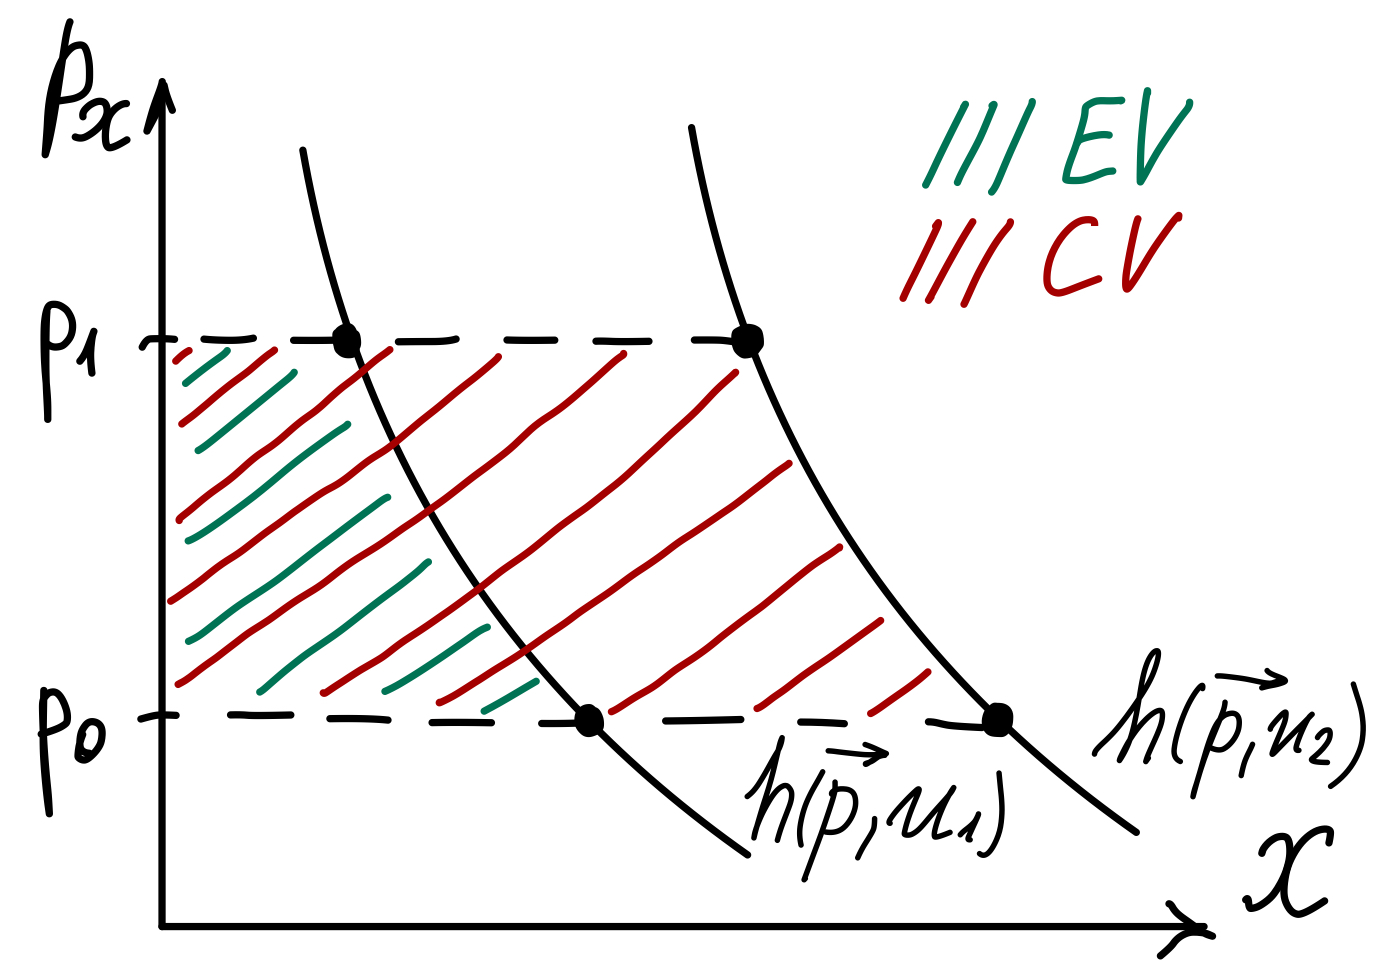 px
/// EV
/// CV
p1
p0
h(p, u2)
h(p, u1)
x